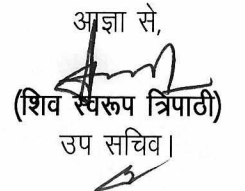 आज्ञा से,
(शिव स्वरूप त्रिपाठी)
उप सचिव।